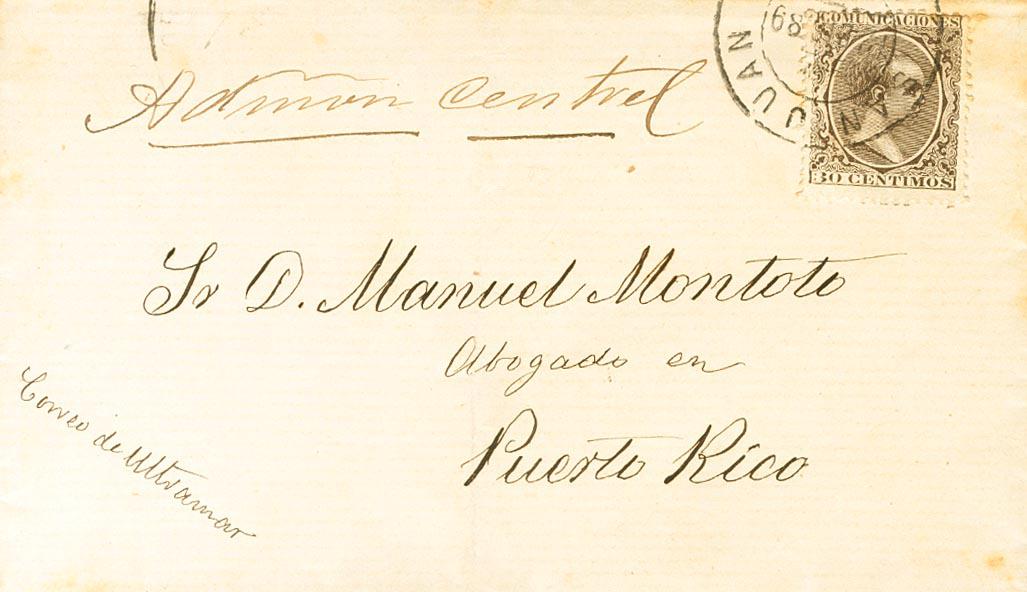 COMUNICACIONES
30 CENTIMOS
SAN JUAN
89
Admon central
Sr D. Manuel Montoto
Abogado en
Puerto Rico
Correo de Ultramar